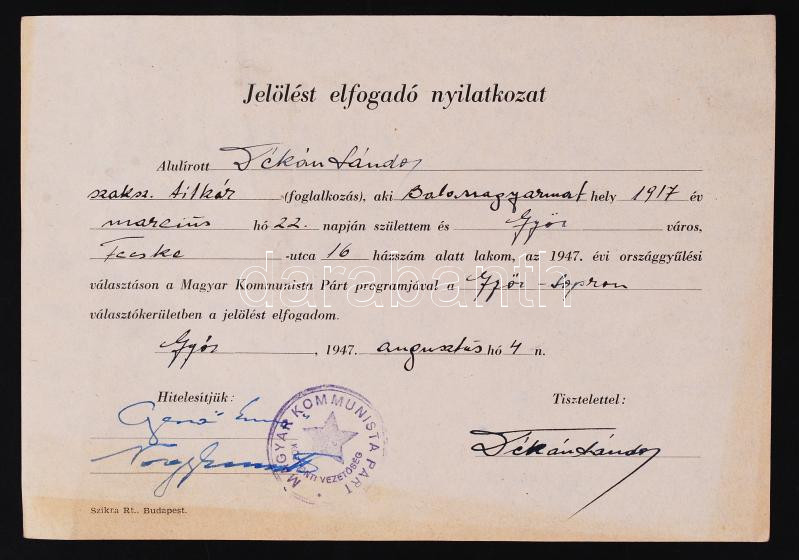 Jelölést elfogadó nyilatkozat
Alulírott Dékán Sándor
szaksz. titkár (foglalkozás), aki Balassagyarmat hely 1917 év
március hó 22. napján születtem és Győr város,
Fecske -utca 16 házszám alatt lakom, az 1947. évi országgyűlési
választáson a Magyar Kommunista Párt programjával a Győr-Sopron
választókerületben a jelölést elfogadom.
Győr , 1947. augusztus hó 4 n.
Hitelesítjük: Tisztelettel:
Dékán Sándor
MAGYAR KOMMUNISTA PÁRT
VEZETŐSÉG
Szikra Rt., Budapest.
darabanth